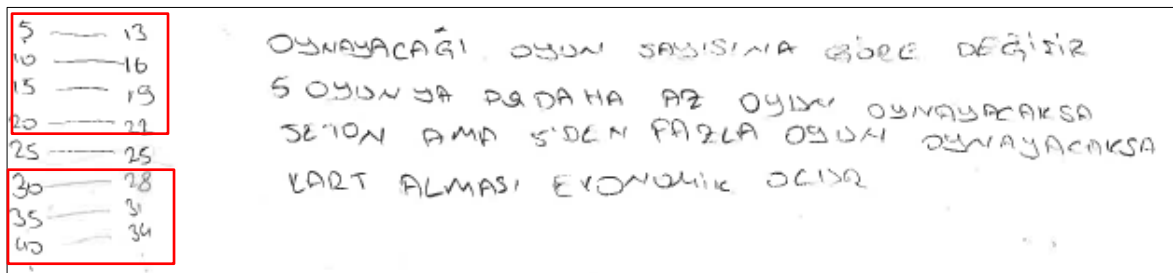 5 — 13
10 — 16
15 — 19
20 — 22
25 — 25
30 — 28
35 — 31
40 — 34
OYNAYACAĞI OYUN SAYISINA GÖRE DEĞİŞİR
5 OYUN YA DA DAHA AZ OYUN OYNAYACAKSA
JETON AMA 5'DEN FAZLA OYUN OYNAYACAKSA
KART ALMASI EKONOMİK OLUR